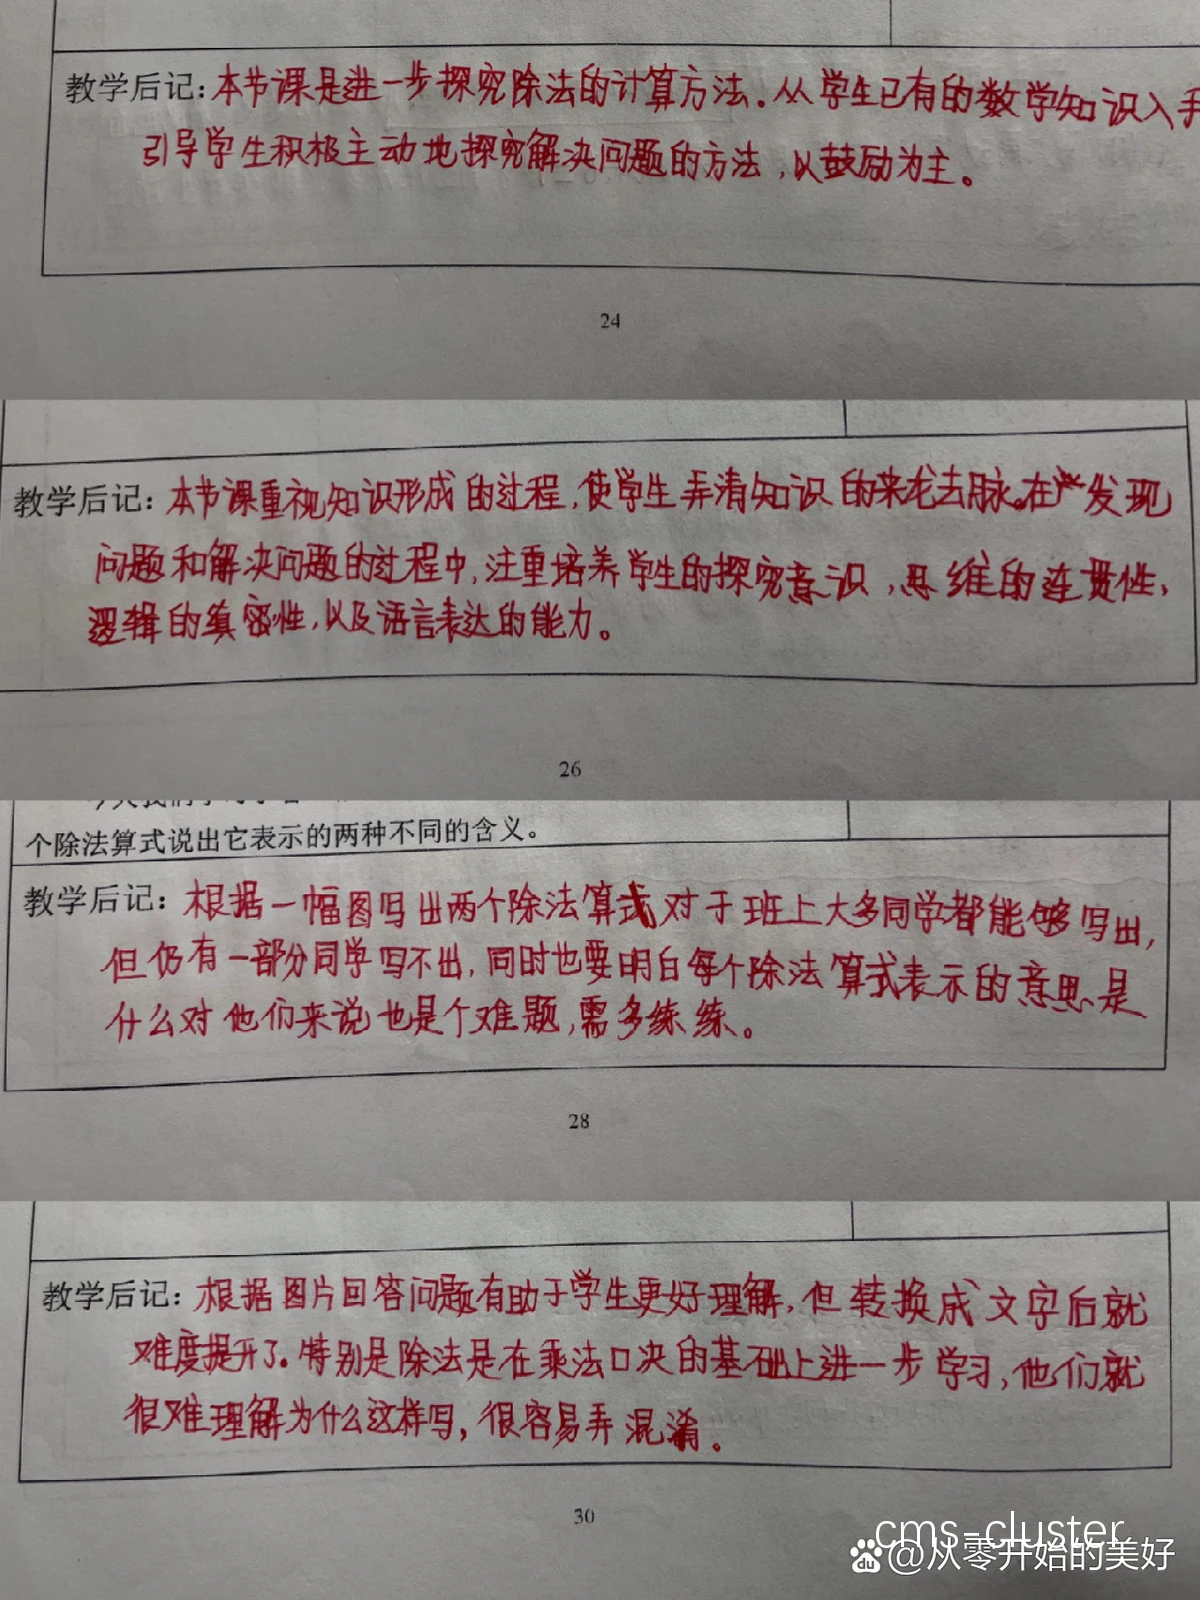 教学后记:本节课是进一步探究除法的计算方法。从学生已有的数学知识入手
引导学生积极主动地探究解决问题的方法,以鼓励为主。
24
教学后记:本节课重视知识形成的过程,使学生弄清知识的来龙去脉。在发现
问题和解决问题的过程中,注重培养学生的探究意识,思维的连贯性,
逻辑的缜密性,以及语言表达的能力。
26
个除法算式说出它表示的两种不同的含义。
教学后记:根据一幅图写出两个除法算式对于班上大多同学都能够写出,
但仍有一部分同学写不出,同时也要明白每个除法算式表示的意思是
什么对他们来说也是个难题,需多练练。
28
教学后记:根据图片回答问题有助于学生更好理解,但转换成文字后就
难度提升了。特别是除法是在乘法口决的基础上进一步学习,他们就
很难理解为什么这样写,很容易弄混淆。
30
cms-cluster
du @从零开始的美好